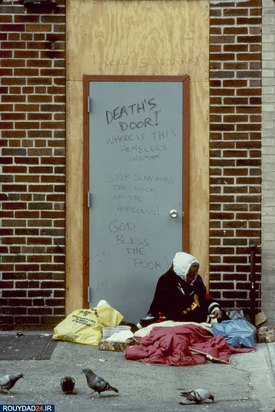 DEATH'S
DOOR!
WHERE IS THIS
HOMELESS
WOMAN
STOP SLAMMING
THE DOOR
ON THE
HOMELESS!
GOD
BLESS
THE
POOR!
ROUYDAD24.IR